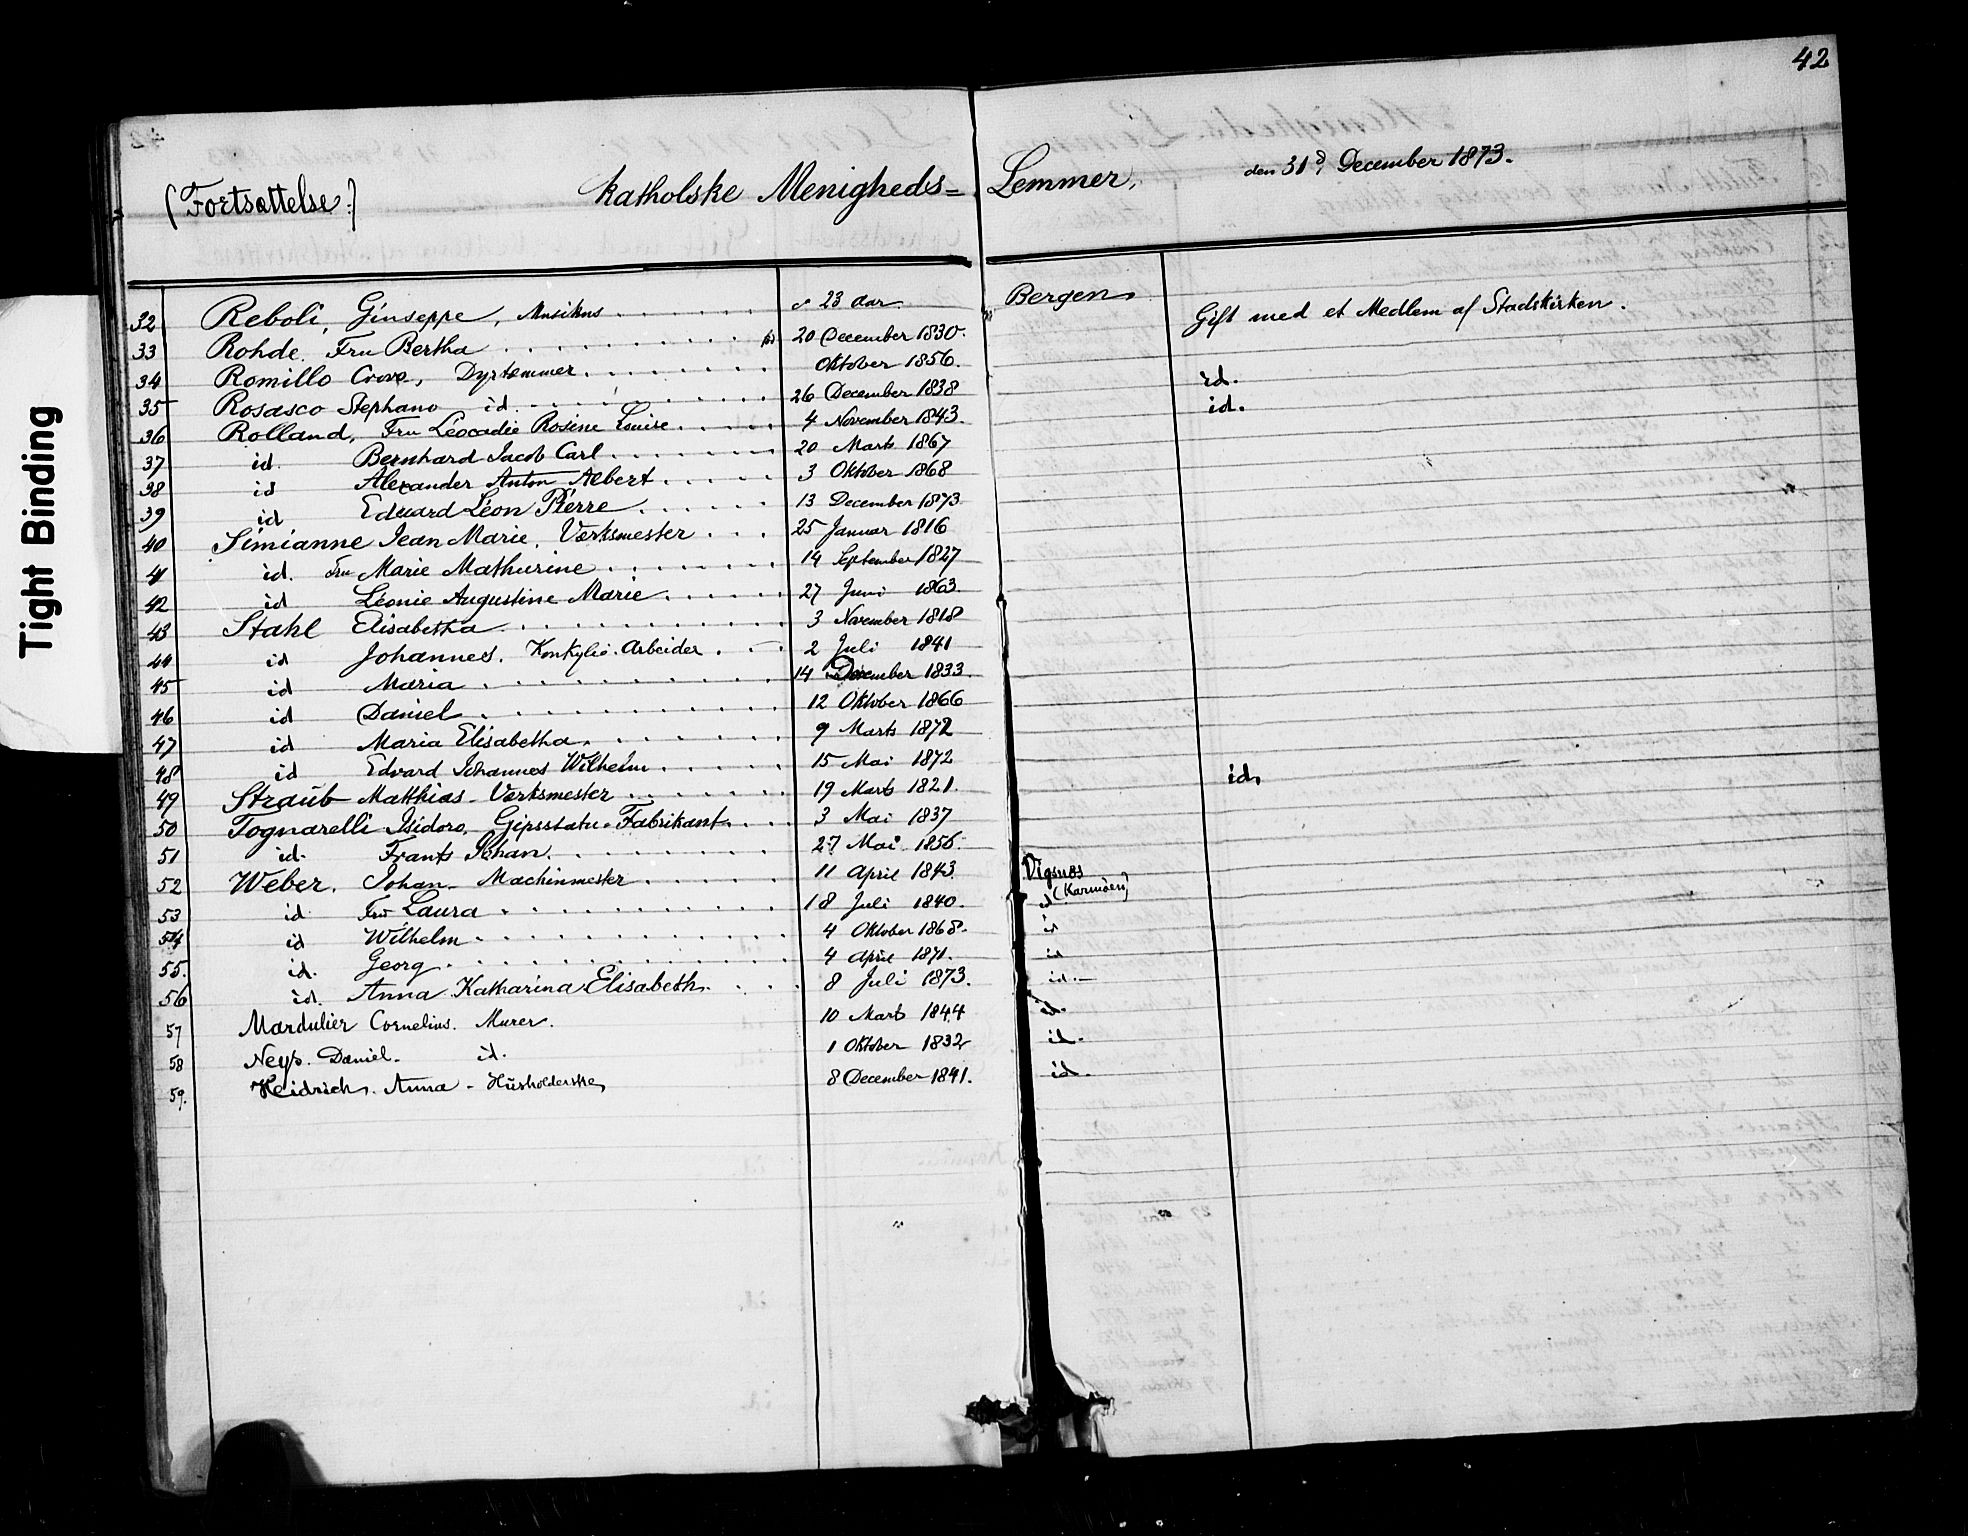 42
(Fortsættelse:) katholske Menigheds=Lemmer, den 31.d December 1873.
32 Reboli, Giuseppe, Musikus 23 Aar Bergen Gift med et Medlem af Stadskirken.
33 Rohde, Fru Bertha 20 December 1830.
34 Romillo Dyrtæmmer Oktober 1856. id.
35 Rosasco Stephano id. 26 December 1838 id.
36 Rolland, Fru Léocadie Rosine Louise 4 November 1843.
37 id. Bernhard Jacob Carl 20 Marts 1867
38 id Alexander Anton Albert 3 Oktober 1868
39 id Eduard Léon Pierre 13 December 1873
40 Simianne Jean Marie, Værksmester 25 Januar 1816
41 id. Fru Marie Mathurine 14 September 1827
42 id Léonie Augustine Marie 27 Juni 1863
43 Stahl Elisabetha 3 November 1818
44 id Johannes. Konkylie-Arbeider 2 Juli 1841
45 id Maria 14 December 1833.
46 id Daniel 12 Oktober 1866
47 id Maria Elisabetha 9 Marts 1872
48 id Edvard Johannes Wilhelm 15 Mai 1872
49 Straub Matthias - Værksmester 19 Marts 1821. id.
50 Tognarelli Isidoro, Gipsstatu-Fabrikant 3 Mai 1837
51 id. Frants Johan 27 Mai 1856.
52 Weber, Johan - Machinmester 11 April 1843 Vigsnæs
(Karmöen)
53 id Fru Laura 18 Juli 1840. id
54 id Wilhelm 4 Oktober 1868. id
55. id. Georg 4 April 1871. id
56 id. Anna Katharina Elisabeth 8 Juli 1873. id.-
57 Mardulier Cornelius. Murer. 10 Marts 1844 id.
58 Neys. Daniel. id. 1 Oktober 1832 id.
59. Heidrich. Anna - Husholderske 8 December 1841. id.
Tight Binding